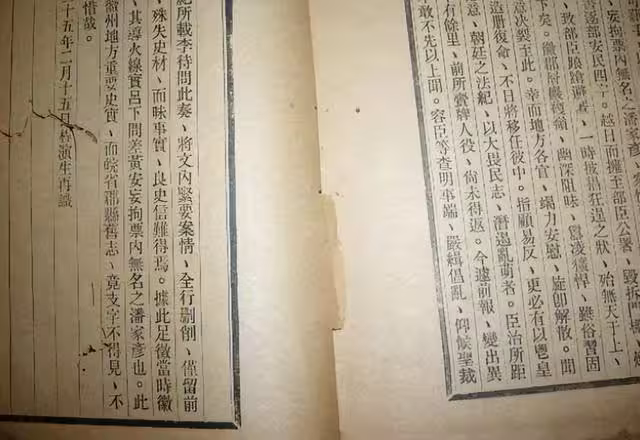 妄拘票內無名之潘家彥、
部安民四丁。越日而擁至部臣公署、毀拆
致部臣踉蹌避者、一時披猖狂逞之狀、殆無天于上、
下矣。徽郡附嚴嶺、幽深阻昧、囂凌獷悍、雖俗習固
意決裂至此。幸而地方各官、竭力安慰、旋卽解散。聞
造册復命、不日將移任彼中。指顧易反、更必有以鬯皇
意、朝廷之法紀、以大畏民志、潛遏亂萌者。臣治所距
有餘里、前所賫牌人役、尙未得返。今遽前報、變出異
敢不先以上聞。容臣等查明事端、嚴緝倡亂、仰候聖裁
紀所載李待問此奏、將文內緊要案情、全行刪削、僅留前
殊失史材、而昧事實、良史信難得焉。據此足徵當時徽
其導火線實呂下問差黃安妄拘票內無名之潘家彥也。此
徽州地方重要史實、而皖省郡縣舊志、竟支字不得見、不
惜哉。
十五年二月十五日程演生再識